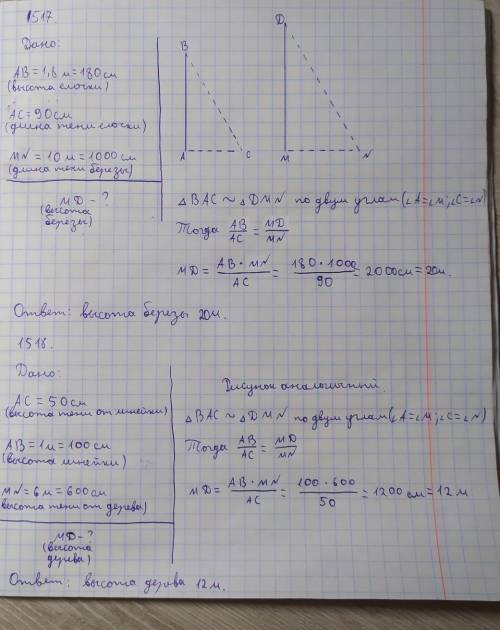 1517.
Дано:
AB = 1,8 м = 180 см
(высота елочки)
AC = 90 см
(длина тени елочки)
MN = 10 м = 1000 см
(длина тени березы)
MD - ?
(высота
березы)
B
A
C
D
M
N
△BAC ~ △DMN по двум углам (∠A=∠M; ∠C=∠N)
Тогда AB/AC = MD/MN
MD = AB · MN/AC = 180 · 1000/90 = 2000 см = 20 м.
Ответ: высота березы 20 м.
1518.
Дано:
AC = 50 см
(высота тени от линейки)
AB = 1 м = 100 см
(высота линейки)
MN = 6 м = 600 см
высота тени от дерева)
MD - ?
(высота
дерева)
Рисунок аналогичный.
△BAC ~ △DMN по двум углам (∠A=∠M; ∠C=∠N
Тогда AB/AC = MD/MN
MD = AB · MN/AC = 100 · 600/50 = 1200 см = 12 м
Ответ: высота дерева 12 м.